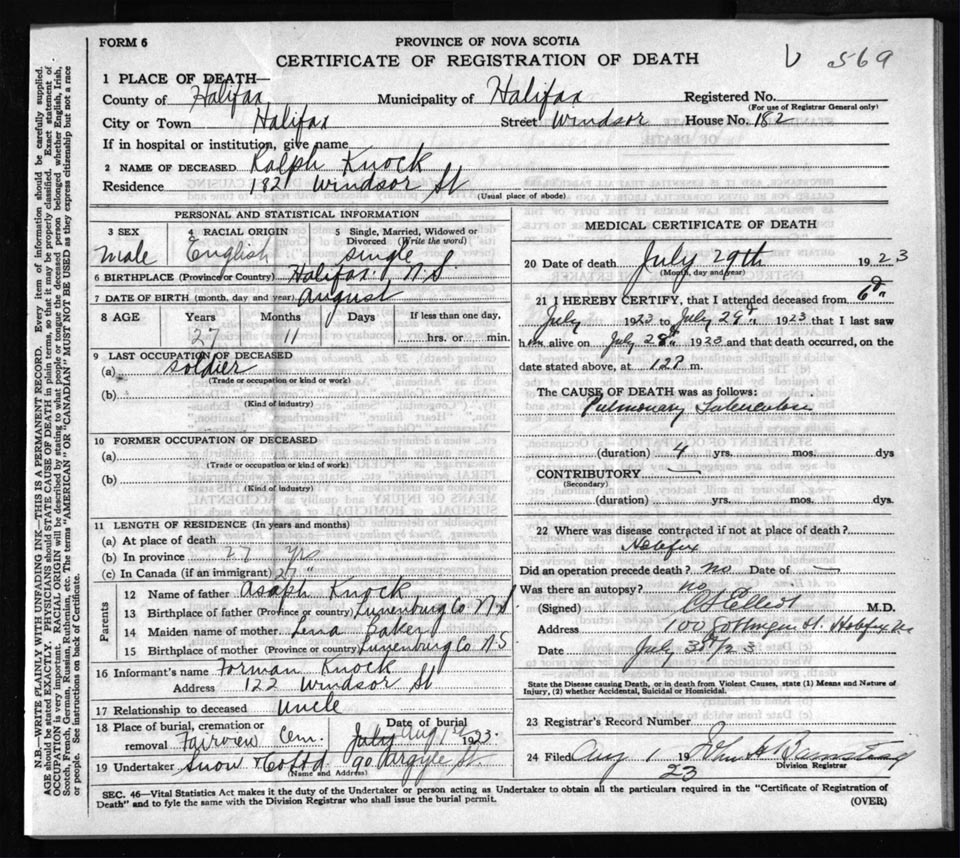 FORM 6
PROVINCE OF NOVA SCOTIA
CERTIFICATE OF REGISTRATION OF DEATH
569
1 PLACE OF DEATH—
County of Halifax Municipality of Halifax Registered No.
(For use of Registrar General only)
City or Town Halifax Street Windsor House No. 182
If in hospital or institution, give name
2 NAME OF DECEASED Ralph Knock
Residence 182 Windsor St
(Usual place of abode)
PERSONAL AND STATISTICAL INFORMATION
3 SEX 4 RACIAL ORIGIN 5 Single, Married, Widowed or Divorced (Write the word)
Male English Single
6 BIRTHPLACE (Province or Country) Halifax. N.S.
7 DATE OF BIRTH (month, day and year) August
8 AGE Years Months Days If less than one day,
27 11 hrs. or min.
9 LAST OCCUPATION OF DECEASED
(a) Soldier
(Trade or occupation or kind or work)
(b)
(Kind of industry)
10 FORMER OCCUPATION OF DECEASED
(a)
(Trade or occupation or kind or work)
(b)
(Kind of industry)
11 LENGTH OF RESIDENCE (In years and months)
(a) At place of death
(b) In province 27 yrs
(c) In Canada (if an immigrant) 27 "
Parents
12 Name of father Asaph Knock
13 Birthplace of father (Province or country) Lunenburg Co N.S
14 Maiden name of mother. Lena Baker
15 Birthplace of mother (Province or country) Lunenburg Co N S
16 Informant's name Forman Knock
Address 122 Windsor St
17 Relationship to deceased Uncle
18 Place of burial, cremation or removal Fairview Cem. Date of burial July Aug 1st 1923.
19 Undertaker Snow & Co Ltd 90 Argyle St.
(Name and Address)
MEDICAL CERTIFICATE OF DEATH
20 Date of death July 29th 1923
(Month, day and year)
21 I HEREBY CERTIFY, that I attended deceased from 6th
July 1923 to July 29th 1923 that I last saw
him alive on July 28th 1923 and that death occurred, on the
date stated above, at m.
The CAUSE OF DEATH was as follows:
Pulmonary Tuberculosis
(duration) 4 yrs. mos. dys
CONTRIBUTORY —
(Secondary)
(duration) yrs. mos. dys.
22 Where was disease contracted if not at place of death?
Halifax
Did an operation precede death? no Date of —
Was there an autopsy? no
(Signed) Elliot M.D.
Address 100 Gottingen St. Halifax
Date July 30th/23
State the Disease causing Death, or in death from Violent Causes, state (1) Means and Nature of Injury, (2) whether Accidental, Suicidal or Homicidal.
23 Registrar's Record Number
24 Filed Aug 1 1923 John H Barnstead
Division Registrar
SEC. 46—Vital Statistics Act makes it the duty of the Undertaker or person acting as Undertaker to obtain all the particulars required in the "Certificate of Registration of
Death" and to fyle the same with the Division Registrar who shall issue the burial permit.
(OVER)
N.B.—WRITE PLAINLY WITH UNFADING INK—THIS IS A PERMANENT RECORD. Every item of information should be carefully supplied.
AGE should be stated EXACTLY. PHYSICIANS should STATE CAUSE OF DEATH in plain terms, so that it may be properly classified. Exact statement of
OCCUPATION is very important. RACIAL ORIGIN will be described by stating to what people or tongue the deceased person belonged whether English, Irish,
Scotch, French, German, Russian, Ruthenian, etc. The terms "AMERICAN" OR "CANADIAN" MUST NOT BE USED as they express citizenship but not a race
or people. See instructions on back of Certificate.